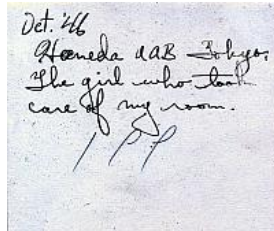 Oct. '46
Haneda AAB Tokyo.
The girl who took
care of my room.